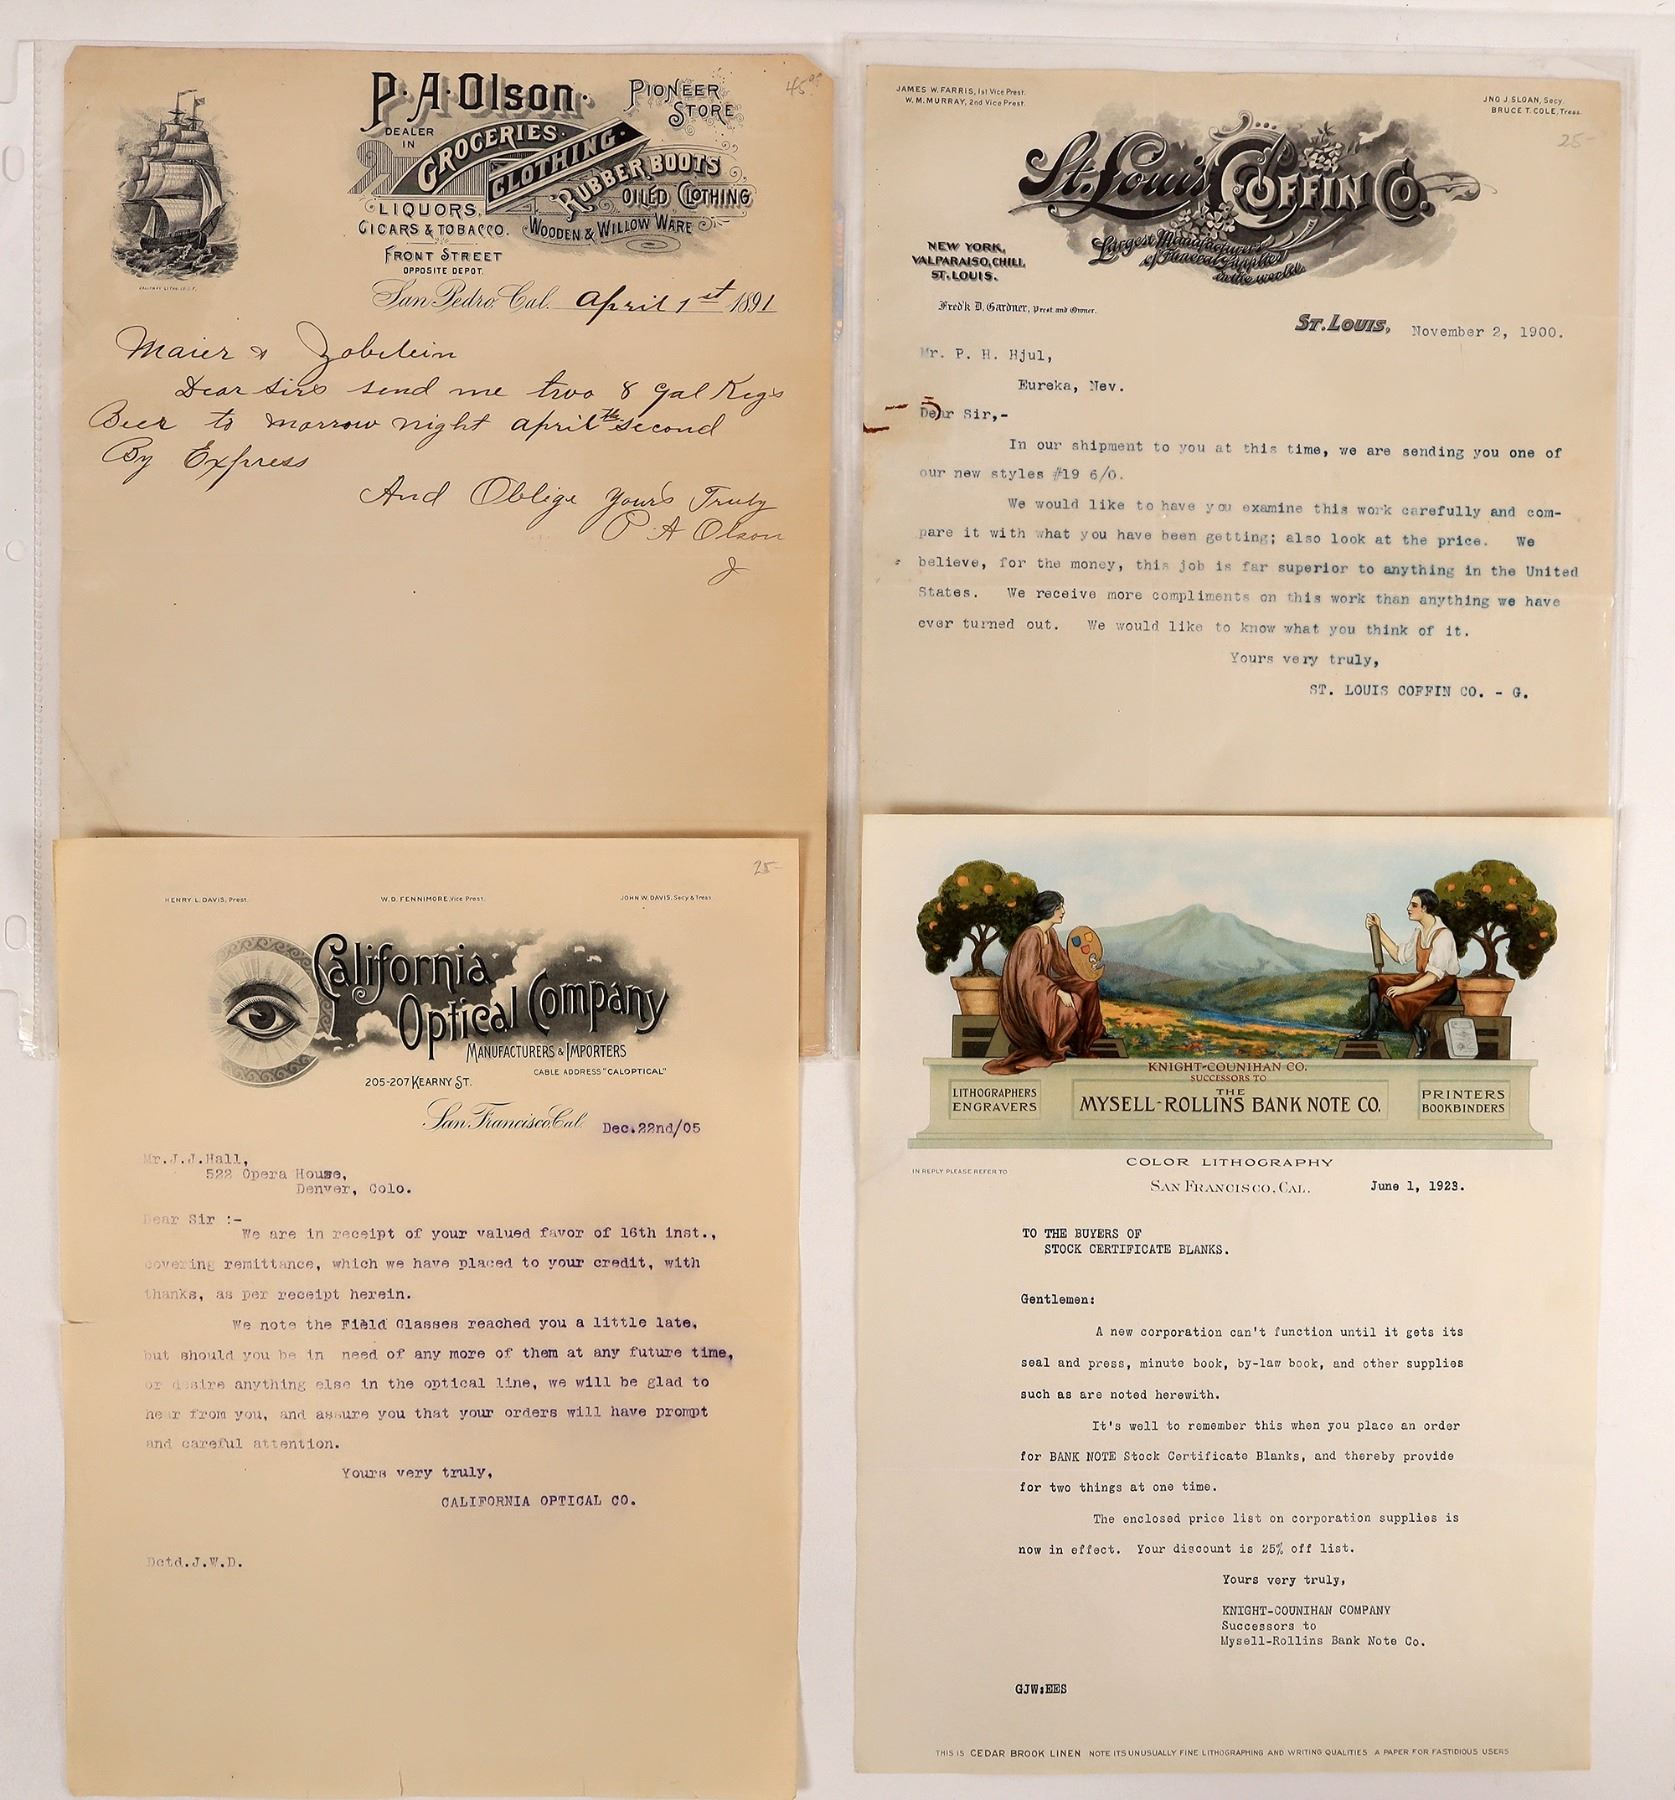 45.00
P. A. Olson.
PIONEER STORE
DEALER IN
GROCERIES.
CLOTHING.
RUBBER BOOTS
OILED CLOTHING
LIQUORS,
CIGARS & TOBACCO.
WOODEN & WILLOW WARE
FRONT STREET
OPPOSITE DEPOT.
San Pedro, Cal. April 1st 1891
Maier & Zobelein
Dear Sirs send me two 8 gal Kegs
Beer to morrow night april the second
By Express
And Oblige Yours Truly
P A Olson
JAMES W. FARRIS, 1st Vice Prest.
W. M. MURRAY, 2nd Vice Prest.
JNO J. SLOAN, Secy.
BRUCE T. COLE, Treas.
25-
St. Louis COFFIN CO.
Largest Manufacturers
of Funeral Supplies
in the world.
NEW YORK,
VALPARAISO, CHILI,
ST. LOUIS.
Fred'k D. Gardner, Prest and Owner.
ST. LOUIS, November 2, 1900.
Mr. P. H. Hjul,
Eureka, Nev.
Dear Sir,-
In our shipment to you at this time, we are sending you one of
our new styles #19 6/0.
We would like to have you examine this work carefully and com-
pare it with what you have been getting; also look at the price. We
believe, for the money, this job is far superior to anything in the United
States. We receive more compliments on this work than anything we have
ever turned out. We would like to know what you think of it.
Yours very truly,
ST. LOUIS COFFIN CO. - G.
25-
HENRY L. DAVIS, Prest.
W. D. FENNIMORE, Vice Prest.
JOHN W. DAVIS, Secy & Treas.
California
Optical Company
MANUFACTURERS & IMPORTERS
CABLE ADDRESS "CALOPTICAL"
205-207 KEARNY ST.
San Francisco, Cal. Dec.22nd/05
Mr.J.J.Hall,
522 Opera House,
Denver, Colo.
Dear Sir :-
We are in receipt of your valued favor of 16th inst.,
covering remittance, which we have placed to your credit, with
thanks, as per receipt herein.
We note the Field Glasses reached you a little late,
but should you be in need of any more of them at any future time,
or desire anything else in the optical line, we will be glad to
hear from you, and assure you that your orders will have prompt
and careful attention.
Yours very truly,
CALIFORNIA OPTICAL CO.
Dctd.J.W.D.
KNIGHT-COUNIHAN CO.
SUCCESSORS TO
THE
MYSELL-ROLLINS BANK NOTE CO.
LITHOGRAPHERS
ENGRAVERS
PRINTERS
BOOKBINDERS
COLOR LITHOGRAPHY
IN REPLY PLEASE REFER TO
SAN FRANCISCO, CAL. June 1, 1923.
TO THE BUYERS OF
STOCK CERTIFICATE BLANKS.
Gentlemen:
A new corporation can't function until it gets its
seal and press, minute book, by-law book, and other supplies
such as are noted herewith.
It's well to remember this when you place an order
for BANK NOTE Stock Certificate Blanks, and thereby provide
for two things at one time.
The enclosed price list on corporation supplies is
now in effect. Your discount is 25% off list.
Yours very truly,
KNIGHT-COUNIHAN COMPANY
Successors to
Mysell-Rollins Bank Note Co.
GJW:EES
THIS IS CEDAR BROOK LINEN NOTE ITS UNUSUALLY FINE LITHOGRAPHING AND WRITING QUALITIES A PAPER FOR FASTIDIOUS USERS